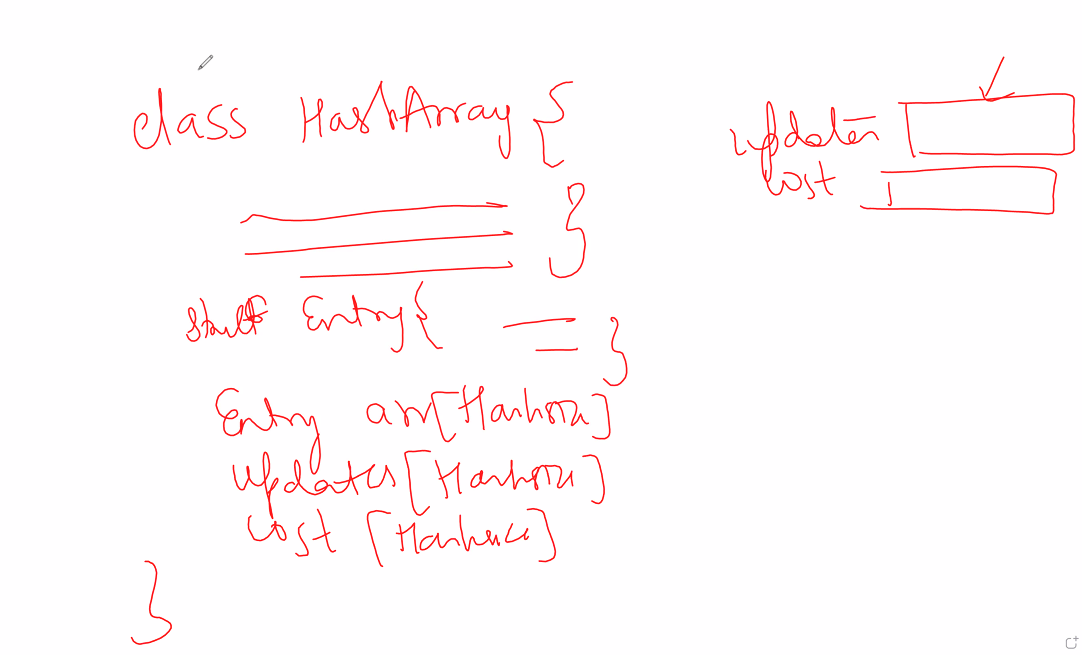 class HashArray {
}
struct Entry { }
Entry arr[Hashsize]
updates [Hashsize]
cost [Hashsize]
}
updates
cost